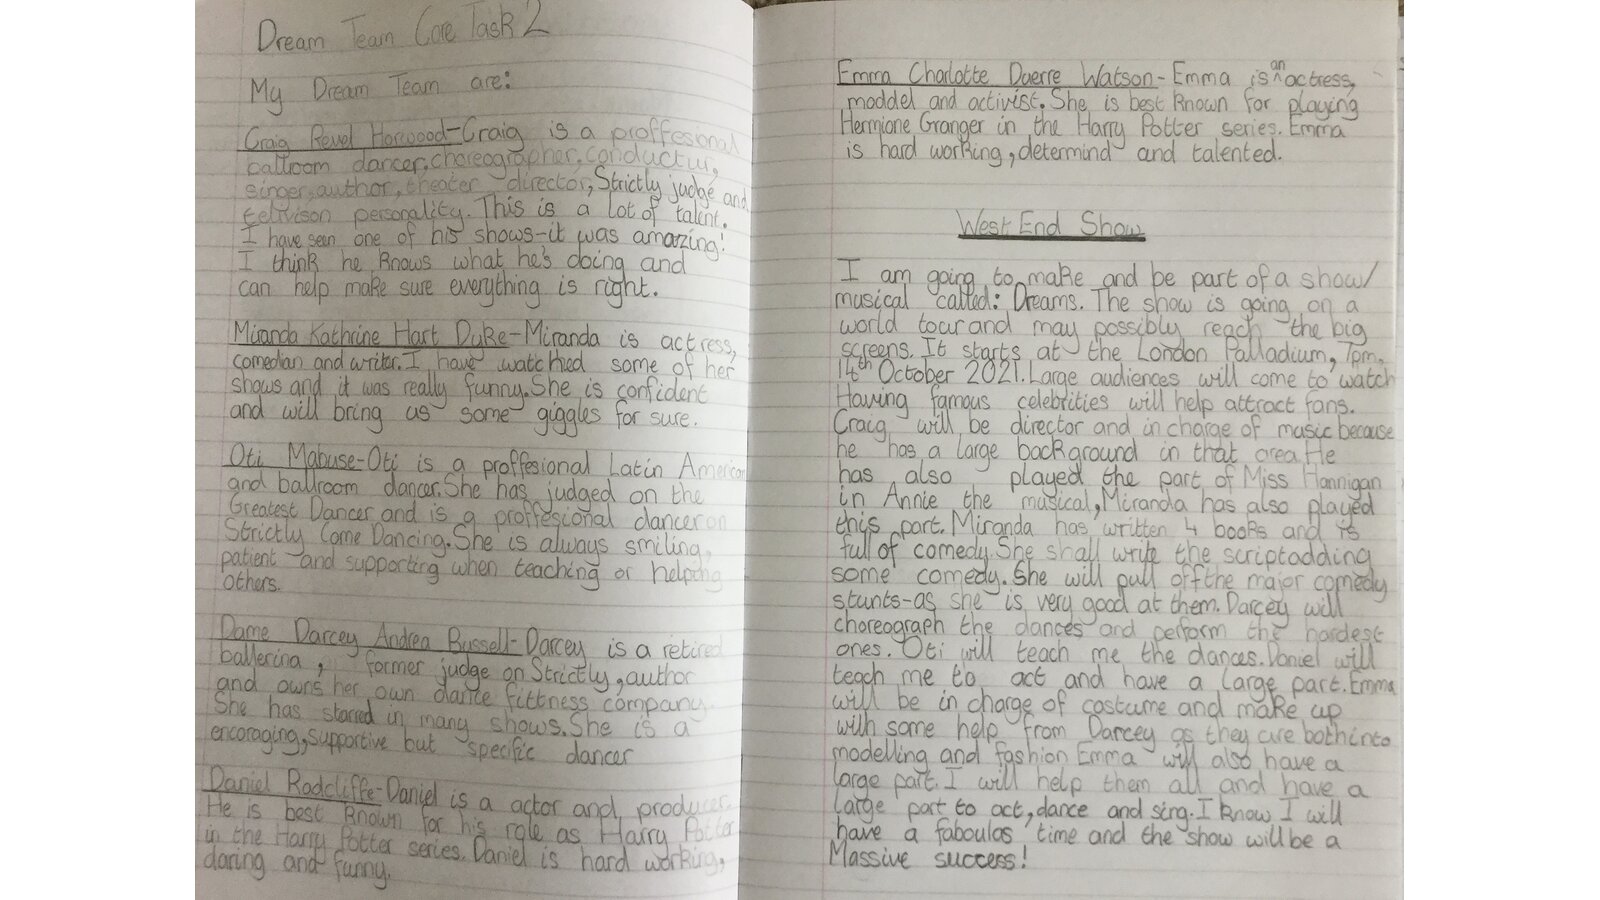 Dream Team Core Task 2
My Dream Team are:
Craig Revel Horwood-Craig is a proffesional
ballroom dancer,choreographer,conductur,
singer,author,theater director,Strictly judge and
telivison personality. This is a lot of talent.
I have seen one of his shows-it was amazing!
I think he knows what he's doing and
can help make sure everything is right.
Miranda Kathrine Hart Dyke-Miranda is actress,
comedian and writer.I have watched some of her
shows and it was really funny.She is confident
and will bring us some giggles for sure.
Oti Mabuse-Oti is a proffesional Latin American
and ballroom dancer.She has judged on the
Greatest Dancer and is a proffesional dancer on
Strictly Come Dancing.She is always smiling,
patient and supporting when teaching or helping
others.
Dame Darcey Andrea Bussell-Darcey is a retired
ballerina, former judge on Strictly,author
and owns her own dance fittness company.
She has starred in many shows.She is a
encoraging,supportive but specific dancer
Daniel Radcliffe-Daniel is a actor and producer.
He is best known for his role as Harry Potter
in the Harry Potter series.Daniel is hard working,
daring and funny.
Emma Charlotte Duerre Watson-Emma is an actress,
moddel and activist.She is best known for playing
Hermione Granger in the Harry Potter series.Emma
is hard working,determind and talented.
West End Show
I am going to make and be part of a show/
musical called: Dreams. The show is going on a
world tour and may possibly reach the big
screens. It starts at the London Palladium, 7pm,
14th October 2021.Large audiences will come to watch
Having famous celebrities will help attract fans.
Craig will be director and in charge of music because
he has a large background in that area.He
has also played the part of Miss Hannigan
in Annie the musical,Miranda has also played
this part.Miranda has written 4 books and is
full of comedy.She shall write the script adding
some comedy.She will pull off the major comedy
stunts-as she is very good at them.Darcey will
choreograph the dances and perform the hardest
ones. Oti will teach me the dances.Daniel will
teach me to act and have a large part.Emma
will be in charge of costume and make up
with some help from Darcey as they are both into
modelling and fashion Emma will also have a
large part.I will help them all and have a
large part to act,dance and sing.I know I will
have a faboulas time and the show will be a
Massive success!